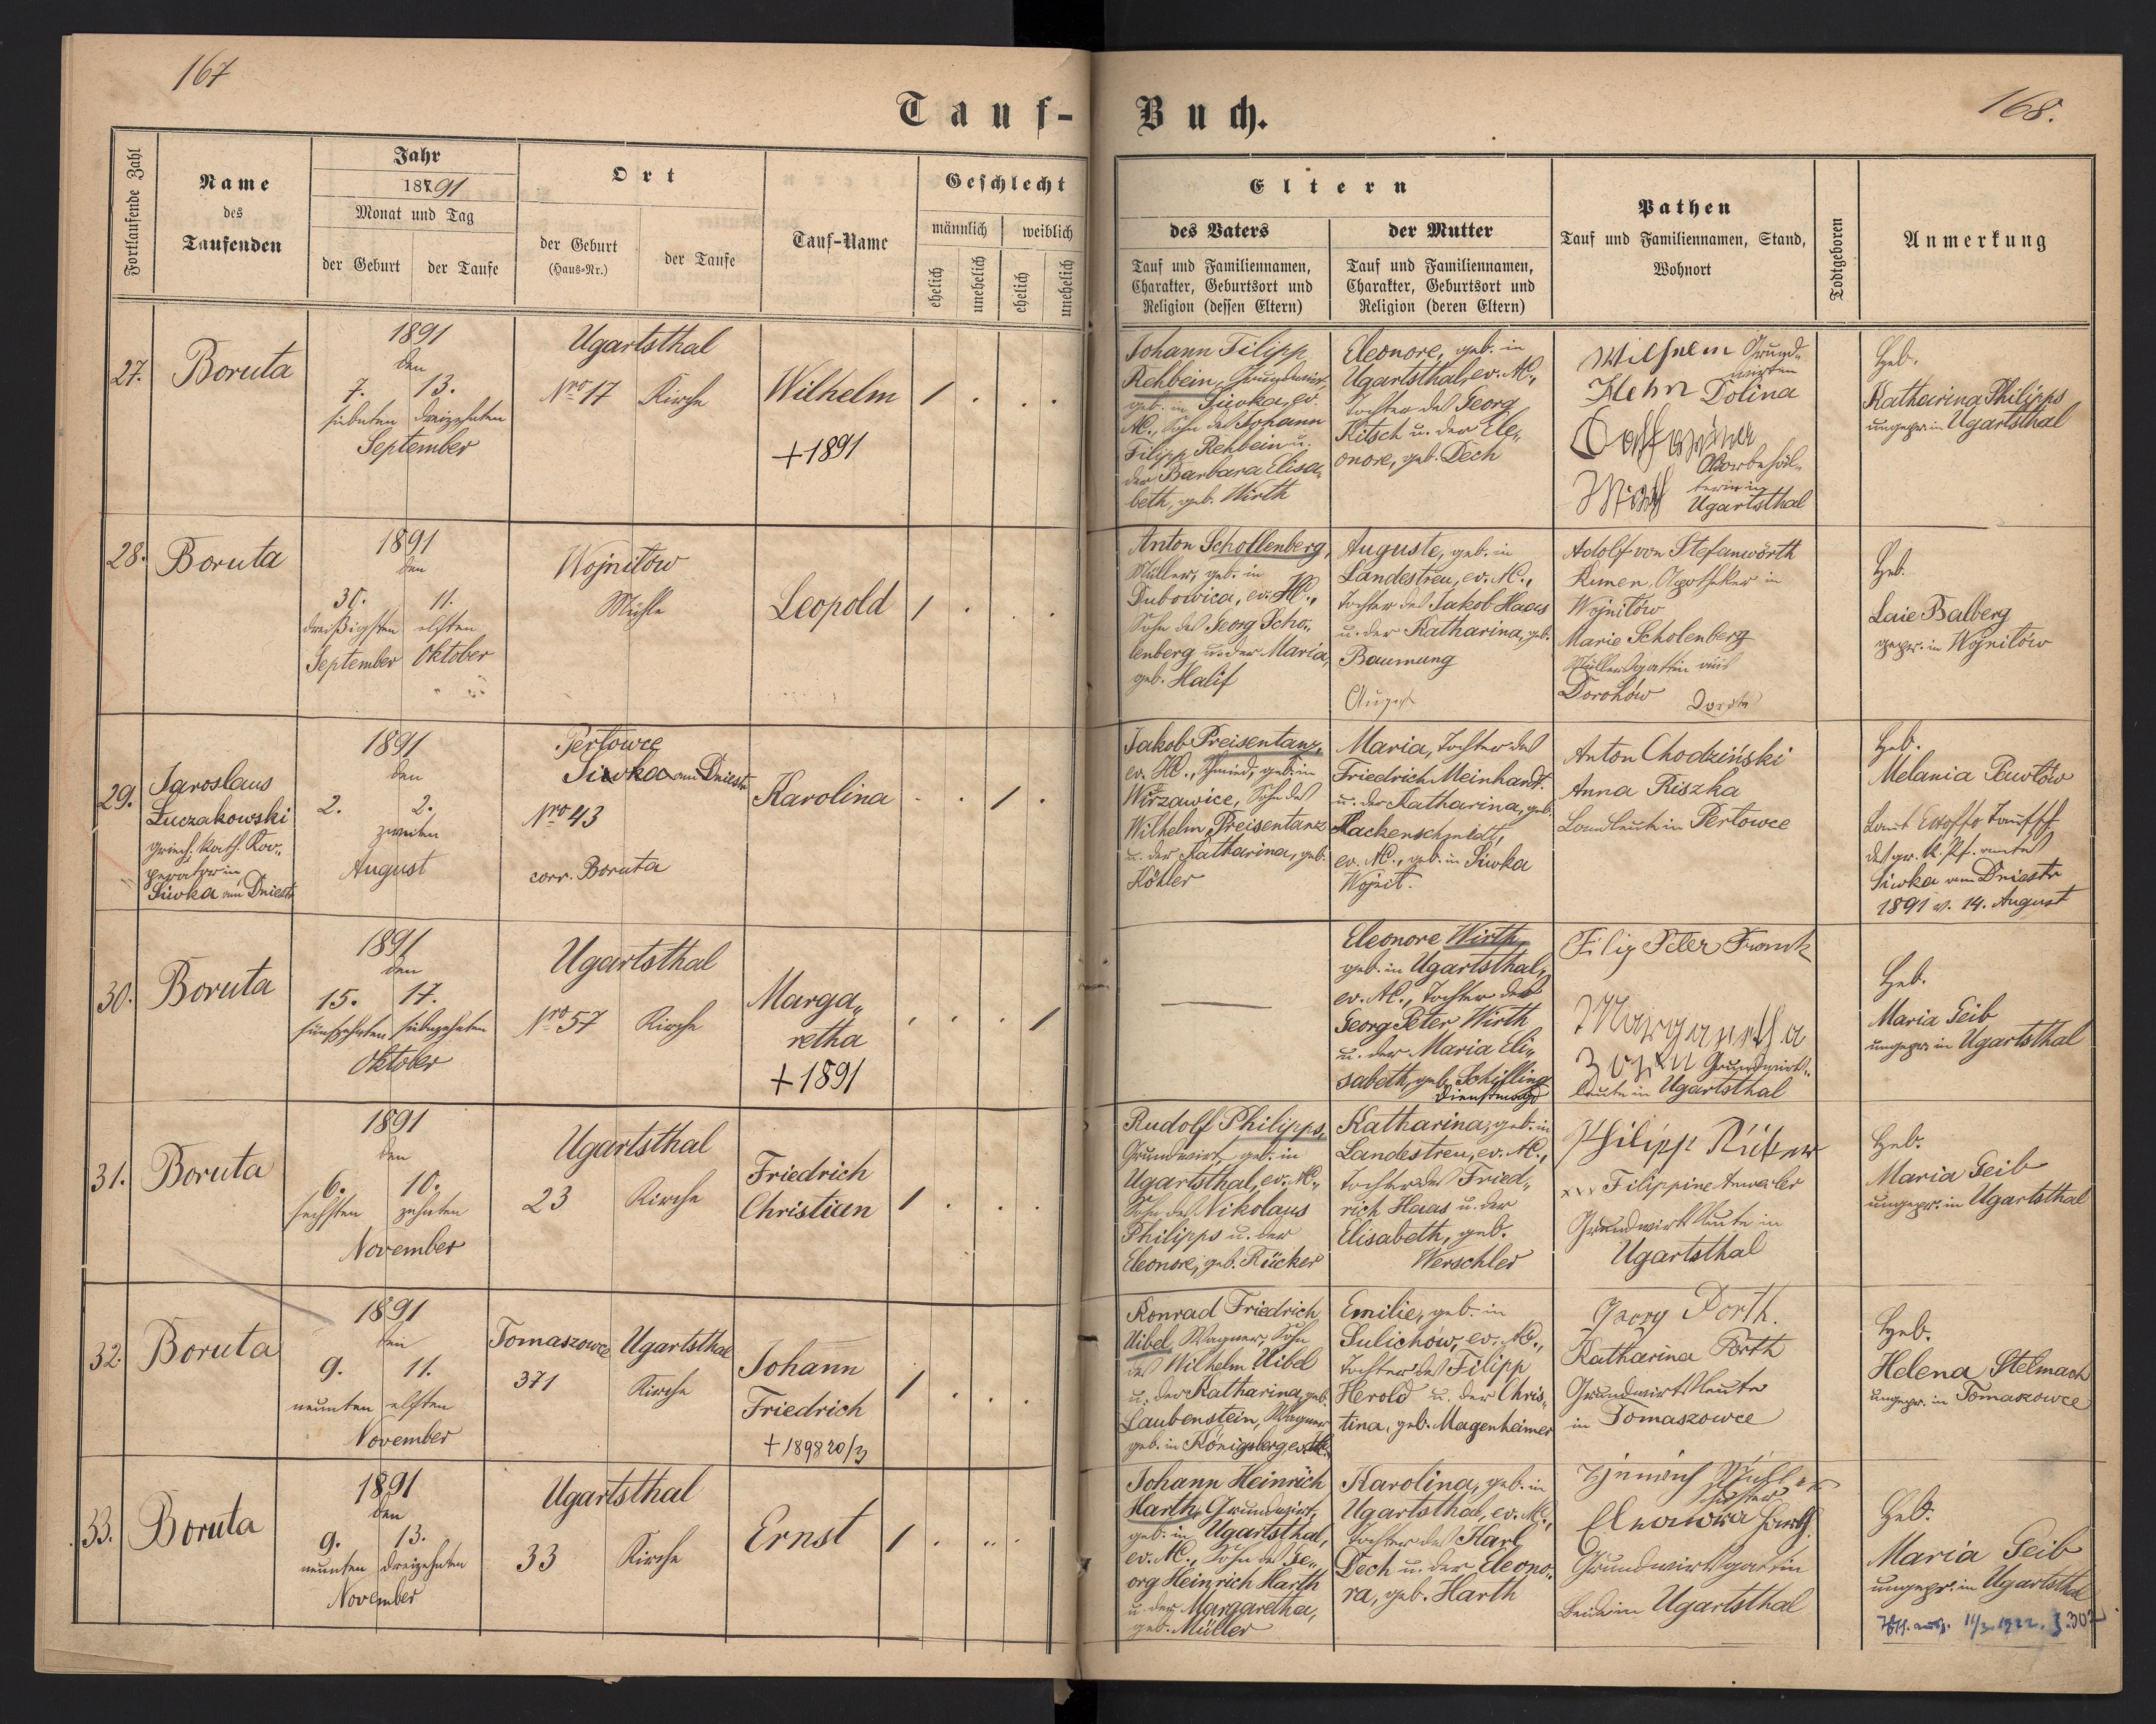 167
168.
Tauf-Buch.
Fortlaufende Zahl
Name
des
Taufenden
Jahr
1891
Monat und Tag
der Geburt
der Taufe
Ort
der Geburt
(Haus-Nr.)
der Taufe
Tauf-Name
Geschlecht
männlich
weiblich
ehelich
unehelich
ehelich
unehelich
Eltern
des Vaters
Tauf und Familiennamen,
Charakter, Geburtsort und
Religion (dessen Eltern)
der Mutter
Tauf und Familiennamen,
Charakter, Geburtsort und
Religion (deren Eltern)
Pathen
Tauf und Familiennamen, Stand,
Wohnort
Todtgeboren
Anmerkung
27.
Boruta
1891
den
7. 13.
siebenten dreizehnten
September
Ugartsthal
Nro 17 Kirche
Wilhelm
+1891
1 . . .
Johann Filipp
Rehbein, Grundwirt,
geb. in Siwka, ev.
A.C., Sohn des Johann
Filipp Rehbein u.
der Barbara Elisa„
beth, geb. Wirth
Eleonore, geb. in
Ugartsthal, ev. A.C.,
Tochter des Georg
Kitsch u. der Ele„
onore, geb. Dech
Wilhelm Grund„
wirt in
Hehn Dolina
Ugartsthal
Heb.
Katharina Philipps
ungepr. in Ugartsthal
28.
Boruta
1891
den
30. 11.
dreißigsten elften
September Oktober
Wojnilow
Mühle
Leopold
1 . .
Anton Schollenberg,
Müller, geb. in
Dubowica, ev. H.C.,
Sohn des Georg Scho„
lenberg u. der Maria,
geb. Halif
Auguste, geb. in
Landestreu, ev. A.C.,
Tochter des Jakob Haas
u. der Katharina, geb.
Baumung
Adolf von Stefanwörth
Apotheker in
Wojnilów
Marie Scholenberg
Müllersgattin aus
Dorohów
Heb.
Laie Balberg
gepr. in Wojnilów
29.
Jaroslaus
Luczakowski
griech. kath. Koo„
perator in
Siwka am Dniestr
1891
den
2. 2.
zweiten
August
Perlowce
Siwka am Dniestr
Nro 43
corr. Boruta
Karolina
. . 1 .
Jakob Preisentanz,
ev. H.C., Schmied, geb. in
Wirzawice, Sohn des
Wilhelm Preisentanz
u. der Katharina, geb.
Köhler
Maria, Tochter des
Friedrich Meinhardt.
u. der Katharina, geb.
Hackenschmidt,
ev. A.C., geb. in Siwka
Wojnil.
Anton Chodziński
Anna Riszka
Landleute in Perlowce
Heb.
Melania Pawlów
des gr. k. Pf. amtes
Siwka am Dniestr
1891 v. 14. August
30.
Boruta
1891
den
15. 17.
fünfzehnten siebzehnten
Oktober
Ugartsthal
Nro 57 Kirche
Marga„
retha
+1891
. . . 1
—
Eleonore Wirth,
geb. in Ugartsthal,
ev. A.C., Tochter des
Georg Peter Wirth
u. der Maria Eli„
sabeth, geb. Schilling
Dienstmagd
Filip Peter Frank
Margaretha
Grundwirts„
leute in Ugartsthal
Heb.
Maria Geib
ungepr. in Ugartsthal
31.
Boruta
1891
den
6. 10.
sechsten zehnten
November
Ugartsthal
23 Kirche
Friedrich
Christian
1 . . .
Rudolf Philipps,
Grundwirt, geb. in
Ugartsthal, ev. A.C.,
Sohn des Nikolaus
Philipps u. der
Eleonore, geb. Rücker
Katharina, geb. in
Landestreu, ev. A.C.,
Tochter des Fried„
rich Haas u. der
Elisabeth, geb.
Werschler
Philipp Rücker
xxx Filippine Anweiler
Grundwirtsleute in
Ugartsthal
Heb.
Maria Geib
ungepr. in Ugartsthal
32.
Boruta
1891
den
9. 11.
neunten elften
November
Tomaszowce Ugartsthal
371 Kirche
Johann
Friedrich
+ 1898 20/3
1 . . .
Konrad Friedrich
Uibel, Wagner, Sohn
des Wilhelm Uibel
u. der Katharina, geb.
Laubenstein, Wagner
geb. in Königsberg, ev. A.C.
Emilie, geb. in
Sulichów, ev. A.C.,
Tochter des Filipp
Herold u. der Chris„
tina, geb. Magenheimer
Georg Porth.
Katharina Porth
Grundwirtsleute
in Tomaszowce
Heb.
Helena Stelmach
ungepr. in Tomaszowce
33.
Boruta
1891
den
9. 13.
neunten dreizehnten
November
Ugartsthal
33 Kirche
Ernst
1 . . .
Johann Heinrich
Harth, Grundwirt,
geb. in Ugartsthal,
ev. A.C., Sohn des Ge„
org Heinrich Harth
u. der Margaretha,
geb. Müller
Karolina, geb. in
Ugartsthal, ev. A.C.,
Tochter des Karl
Dech u. der Eleono„
ra, geb. Harth
Heinrich
Eleonora Harth
Grundwirtsgattin
beide in Ugartsthal
Heb.
Maria Geib
ungepr. in Ugartsthal
11/3. 1922.